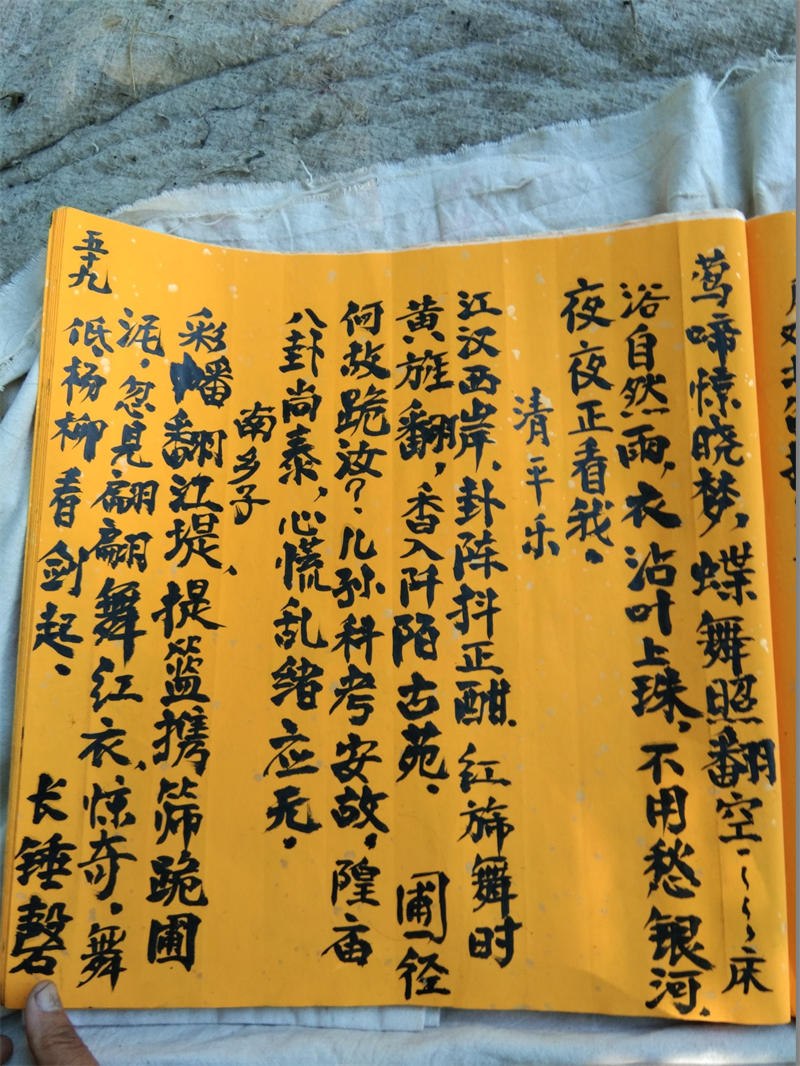 莺啼惊晓梦，蝶舞照翻空，〻〻床
浴自然雨，衣沾叶上珠，不用愁银河，
夜夜正看我。
清平乐
江汉西岸，卦阵抖正酣，红旆舞时
黄旌翻，香入阡陌古苑， 圃一径
何故跪汝？儿孙科考安故，隍庙
八卦尚泰，心慌乱绪应无。
南乡子
彩幡翻江堤，提篮携筛跪圃
泥，忽见翩翩舞红衣，惊奇，舞
低杨柳看剑起， 长锤磬
五十九